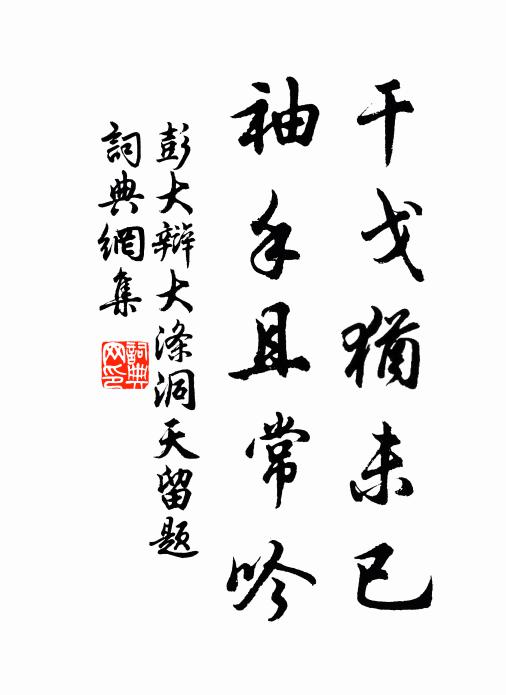 干戈猶未已
袖手且常吟
彭大辯大滌洞天留題
詞典網集
詞典网印